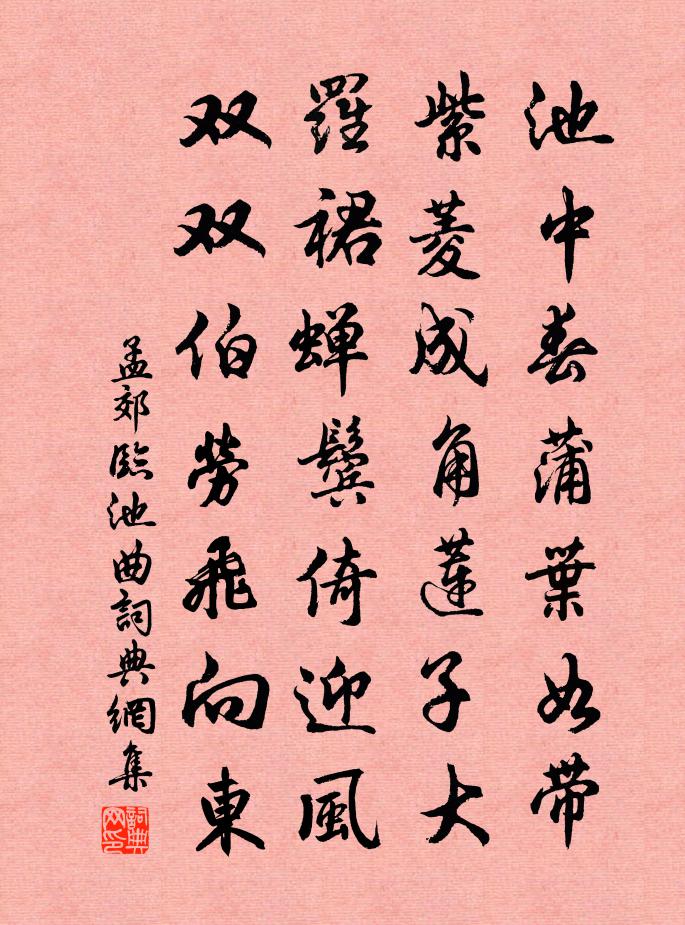 池中春蒲葉如帶
紫菱成角蓮子大
羅裙蟬鬢倚迎風
双双伯勞飛向東
孟郊臨池曲詞典網集
詞典網印